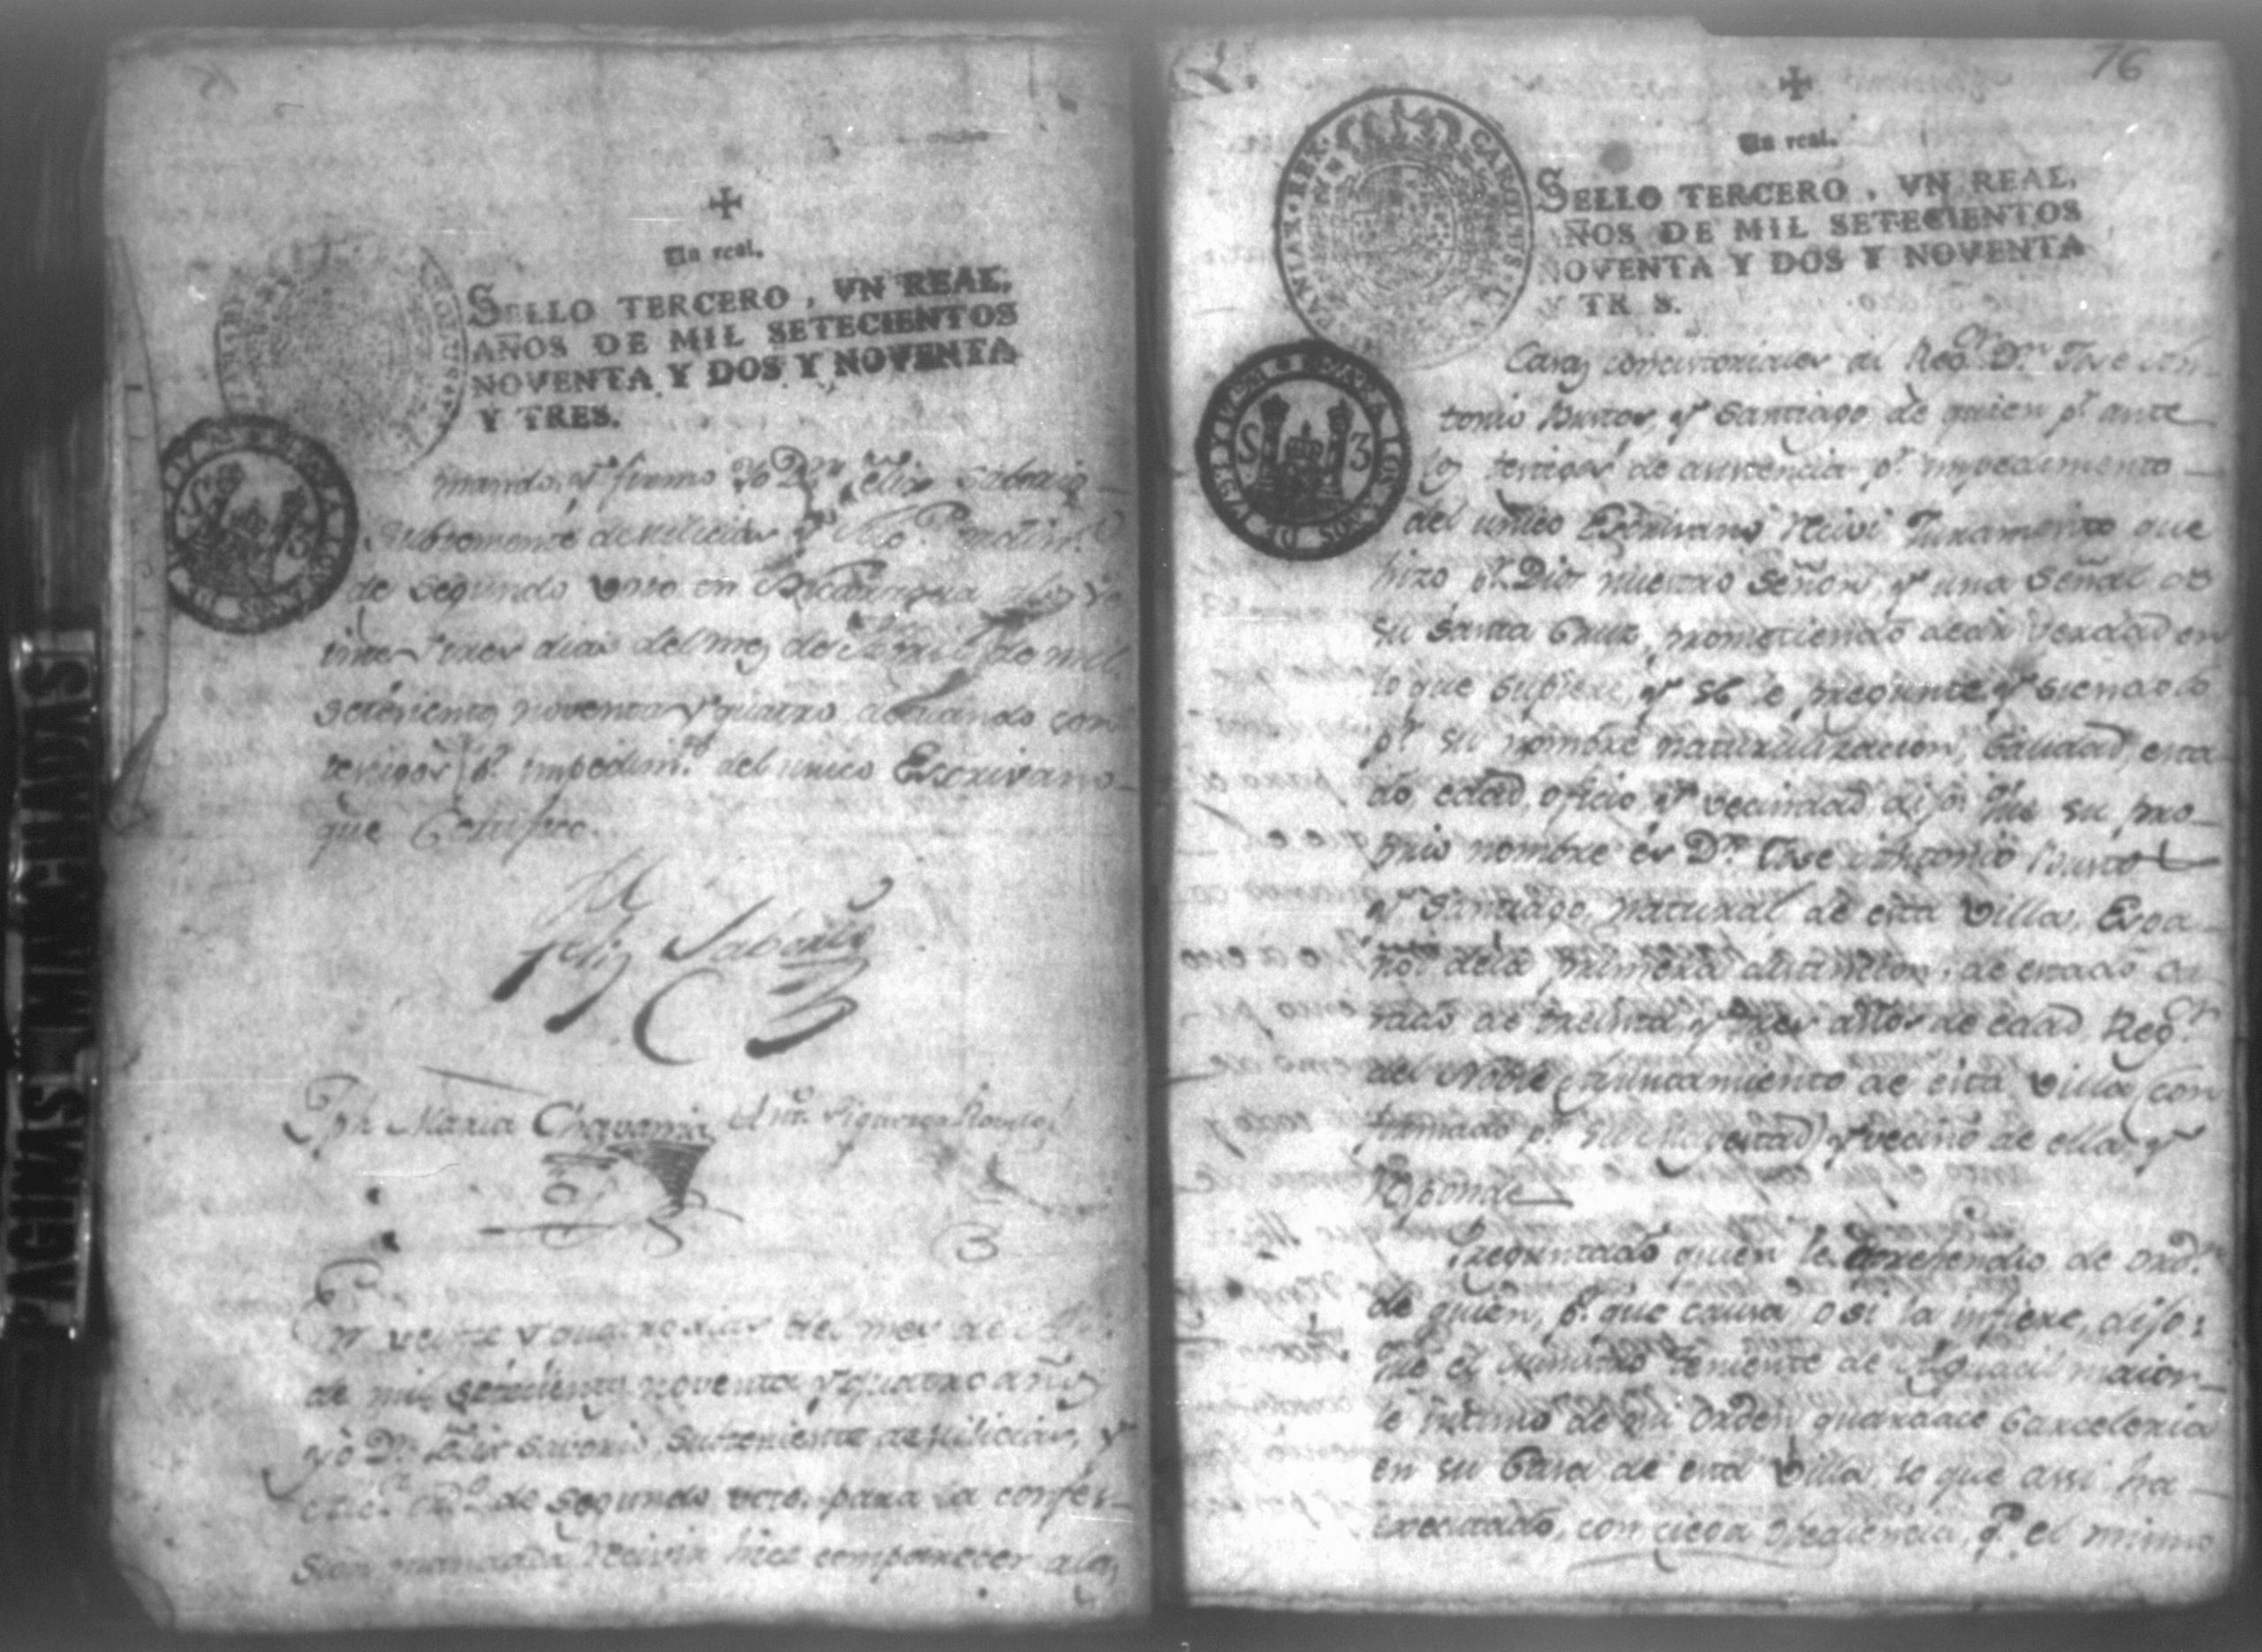 PAGINAS MANCHADAS
Un real.
SELLO TERCERO, VN REAL,
AÑOS DE MIL SETECIENTOS
NOVENTA Y DOS Y NOVENTA
Y TRES.
mando, y firmo Yo Dn. Felix Saborio
Subteniente de Milicias y
de segundo voto en Nicaragua a los ve
inte y tres dias del mes de Abril de mil
setecientos noventa y quatro actuando con
testigos pr. impedimto. del unico Escrivano
que Certifico.
Felix Saborio
Jph Maria Chavarria Anto. Figueroa
En veinte y quatro dias del mes de
de mil setecientos noventa y quatro años
yo Dn. Felix Savorio, Subteniente de Milicias, y
Alce. Ordo. de segundo voto, para la confes-
sion mandada recivir hice comparecer a las
76
Un real.
SELLO TERCERO, VN REAL,
AÑOS DE MIL SETECIENTOS
NOVENTA Y DOS Y NOVENTA
Y TR S.
CAROLUS
Casas concistoriales al Regor. Dn. Jose An
tonio y Santiago de quien pr. ante
los testigos de asistencia pr. impedimento
del unico Escrivano Recivi Juramento que
hizo pr. Dios nuestro Señor, y una Señal de
su Santa Cruz, prometiendo decir verdad en
lo que supiere, y se le pregunte y siendolo
pr. su nombre naturalizacion, Calidad, esta
do edad, oficio, y vecindad, dijo: qe. su pro-
prio nombre es Dn. Jose Antonio
y Santiago, natural de esta Villa, Espa-
ñol de la primera distincion, de estado ca
sado de treinta y tres años de edad, Regor.
del Noble Ayuntamiento de esta Villa (con
firmado pr. su Magestad) y vecino de ella, y
Responde
Preguntado quien le aprehendio, de ordn.
de quien, pr. que causa, o si la infiere, dijo:
que el teniente de Alguacil maior
le intimo de mi orden guardace Carceleria
en su Casa de esta Villa, lo que assi ha
executado, con ciega obediencia, qe. el mismo